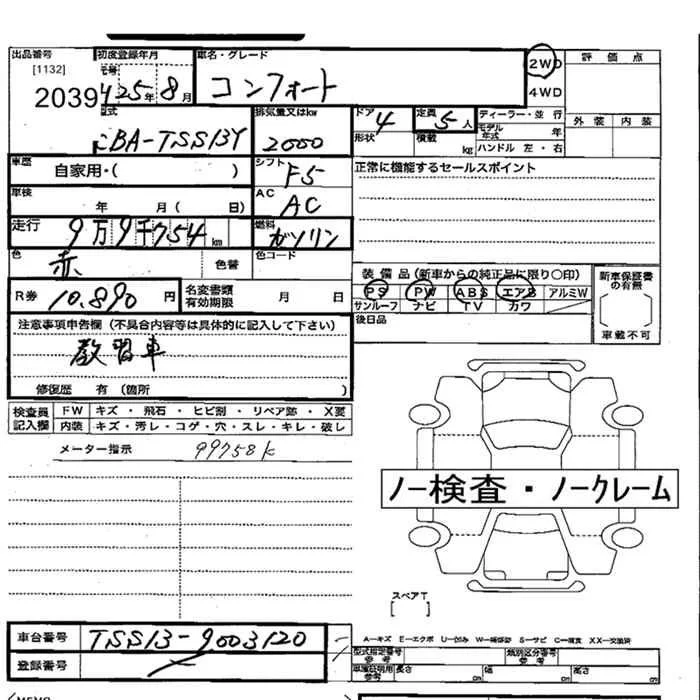 出品番号 初度登録年月 車名・グレード 2WD 評価点
[1132] 25年8月 コンフォート 4WD
2039 型式 排気量又はkw ドア 定員 ディーラー・並行 外装 内装
CBA-TSS13Y 2000 4 5人 モデル年式 年
形状 積載 kg ハンドル 左・右
車歴 シフト 正常に機能するセールスポイント
自家用・( ) F5
車検 AC
年 月( 日) AC
走行 9万9千754km 燃料 ガソリン
色 赤 色替 色コード
装備品(新車からの純正品に限り〇印) 新車保証書の有無
R券 10.890円 名変書類有効期限 月 日 PS PW ABS エアB アルミW
サンルーフ ナビ TV カワ
注意事項申告欄(不具合内容等は具体的に記入して下さい) 後日品 車載不可
教習車
修復歴 有(箇所 )
検査員記入欄 FW キズ・飛石・ヒビ割・リペア跡・X要
内装 キズ・汚レ・コゲ・穴・スレ・キレ・破レ
メーター指示 99758k
ノー検査・ノークレーム
スペアT
[ ]
車台番号 TSS13-9003120
A-キズ E-エクボ U-凹み W-補修跡 S-サビ C-腐食 XX-交換済
登録番号 型式指定番号 参考 類別区分番号 参考
車庫証明用参考 長さ 幅 高さ